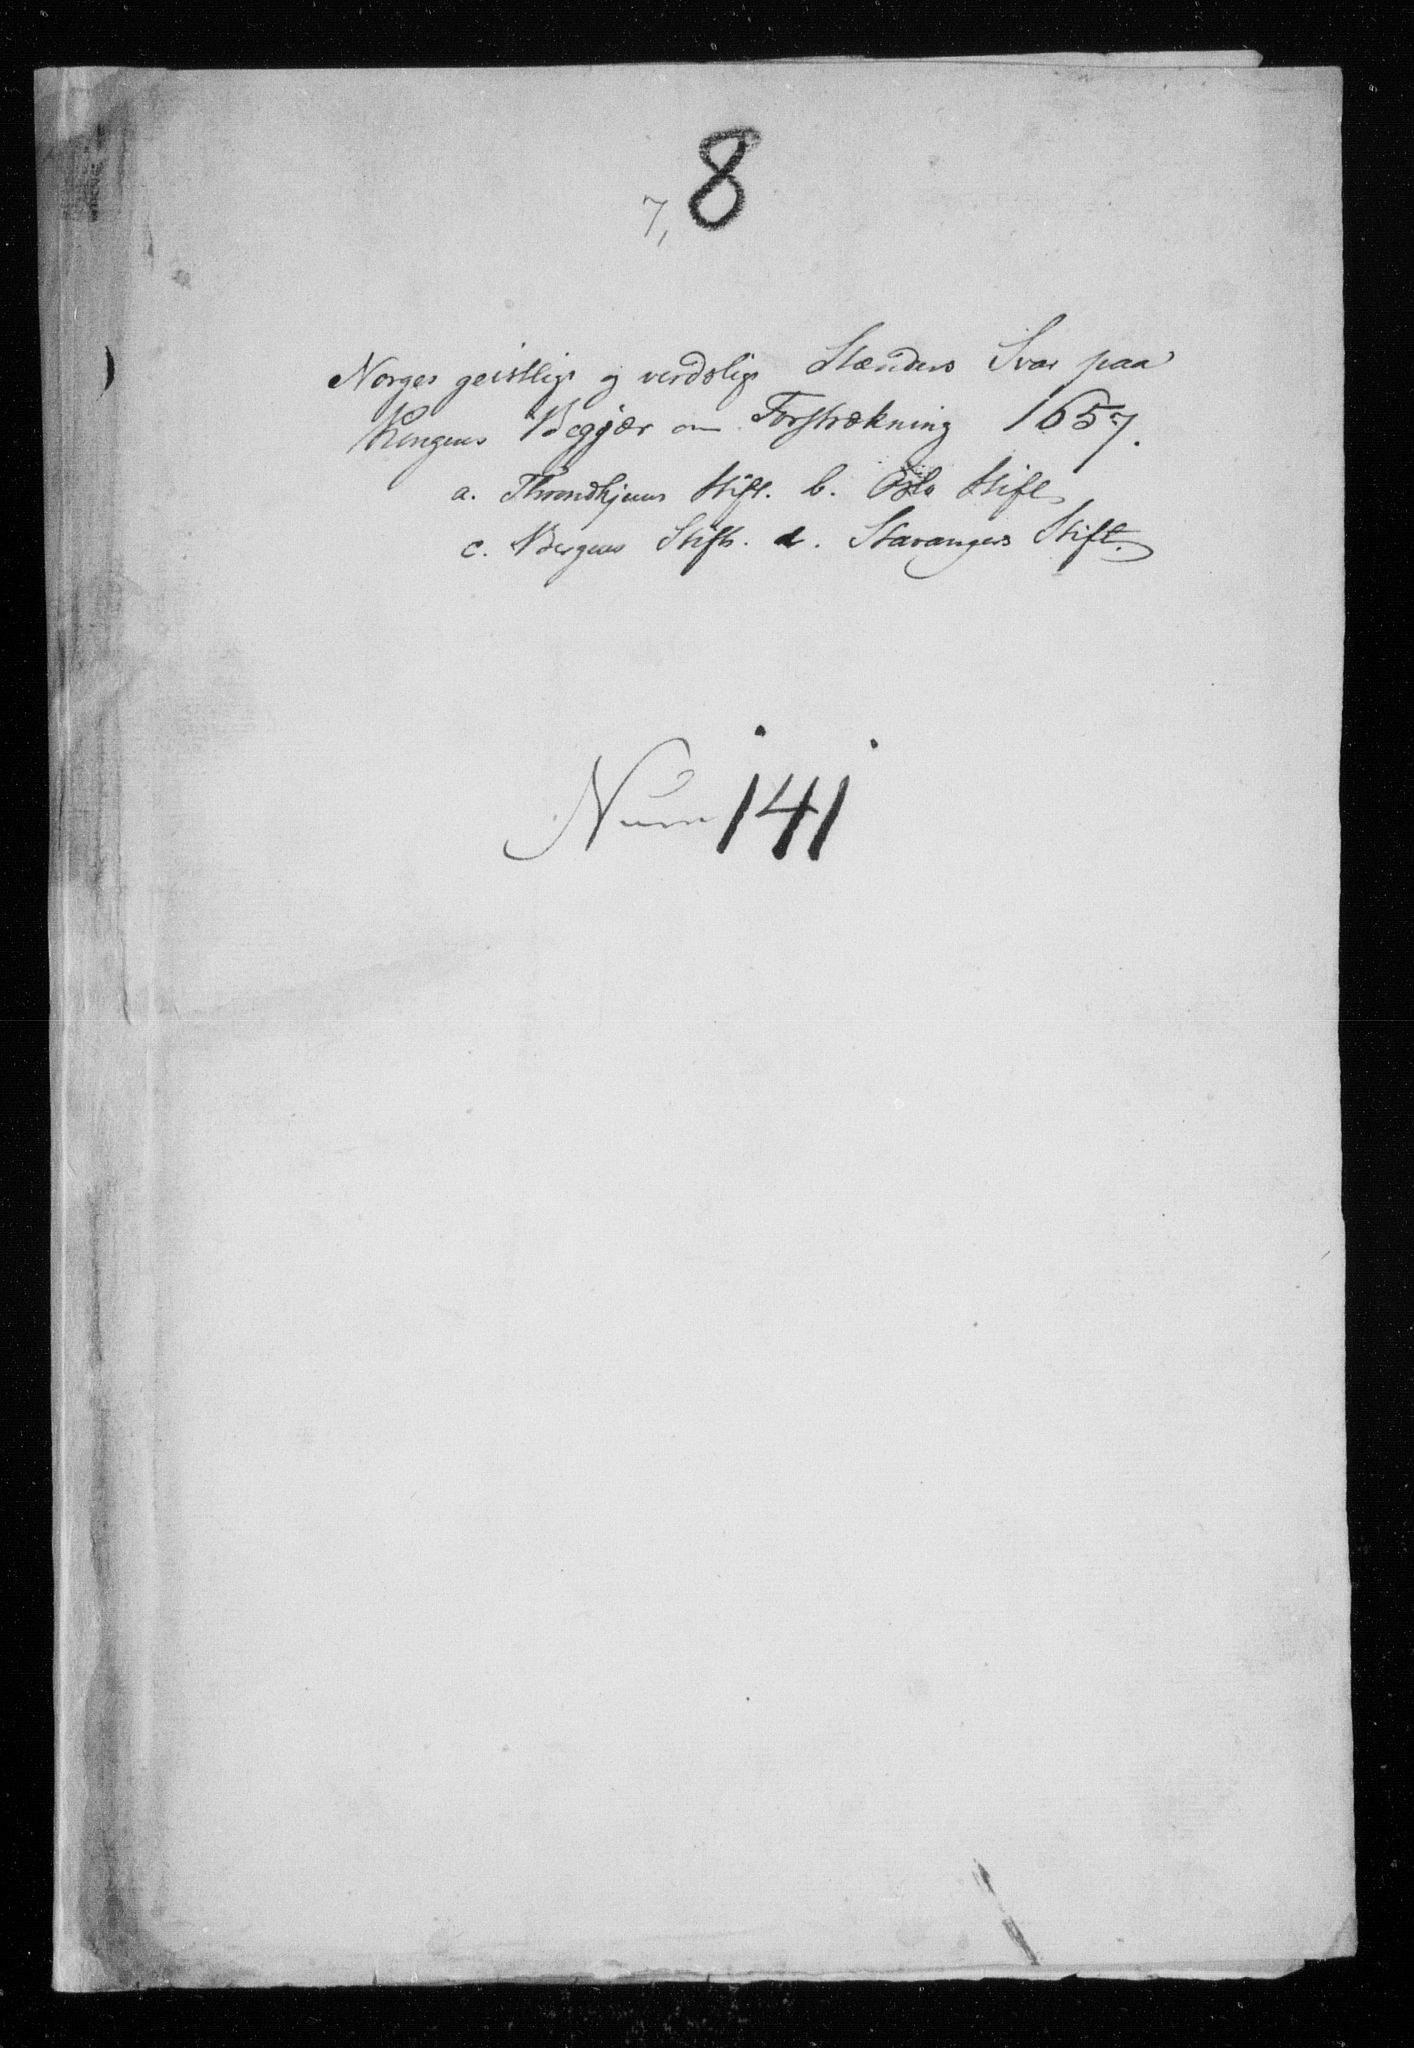 7, 8
Norges geistlige og verdslige Stænders Svar paa
Kongens Begjær om Forstrækning 1657.
a. Throndhjems Stift. b. Oslo Stift
c. Bergens Stift. d. Stavangers Stift.
Num 141